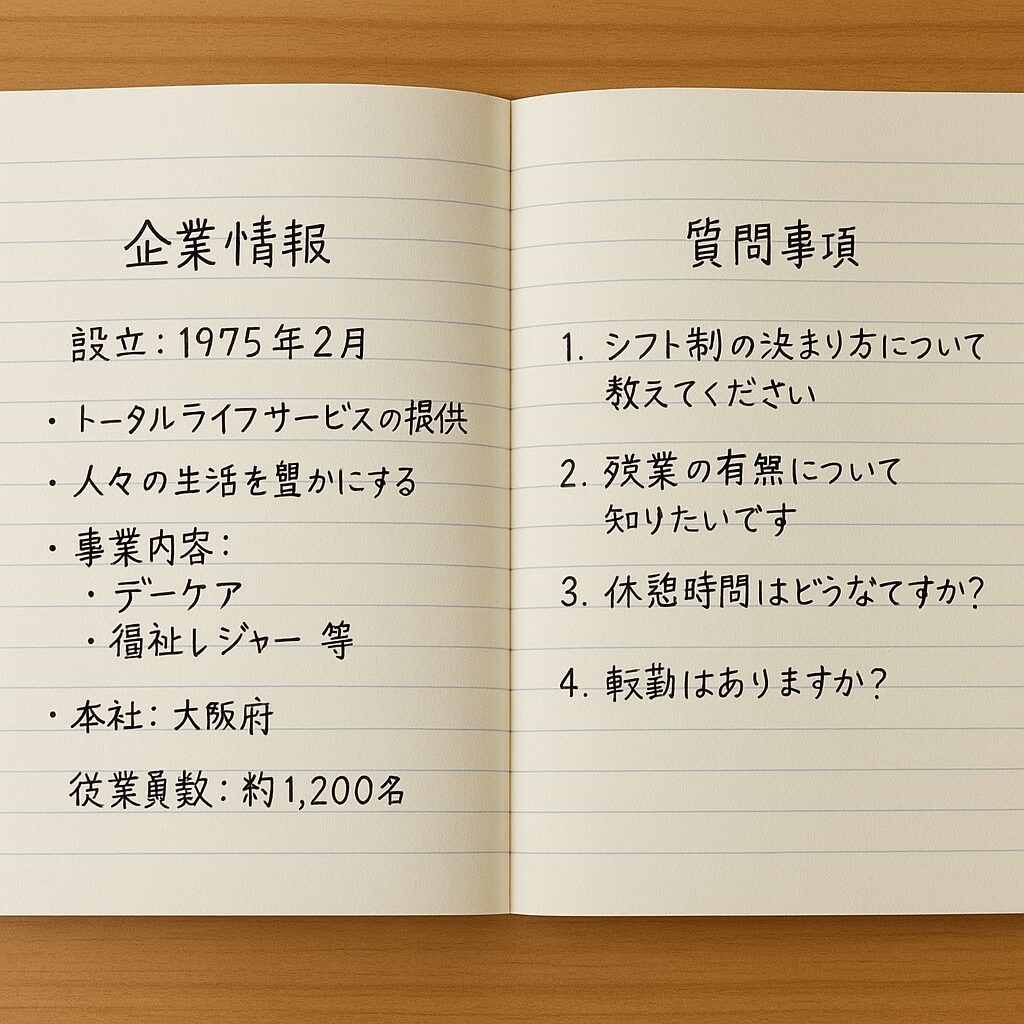 企業情報
設立：1975年2月
・トータルライフサービスの提供
・人々の生活を豊かにする
・事業内容：
・デーケア
・福祉レジャー 等
・本社：大阪府
従業員数：約1,200名
質問事項
1. シフト制の決まり方について
教えてください
2. 残業の有無について
知りたいです
3. 休憩時間はどうなてすか？
4. 転勤はありますか？